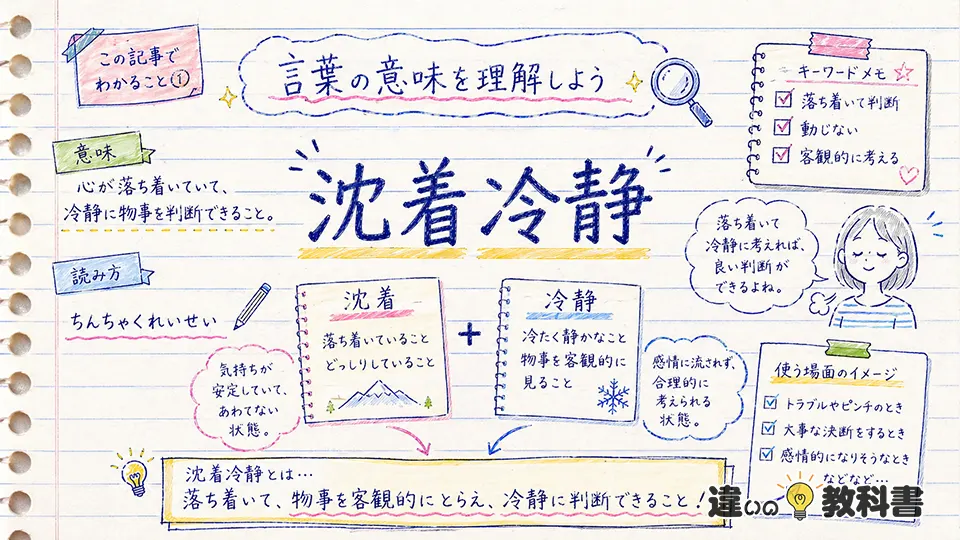 この記事で
わかること①
言葉の意味を理解しよう
キーワードメモ
落ち着いて判断
動じない
客観的に考える
意味
心が落ち着いていて、
冷静に物事を判断できること。
沈着冷静
落ち着いて
冷静に考えれば、
良い判断が
できるよね。
読み方
ちんちゃくれいせい
沈着
落ち着いていること
どっしりしていること
+
冷静
冷たく静かなこと
物事を客観的に
見ること
気持ちが
安定していて、
あわてない
状態。
感情に流されず、
合理的に
考えられる
状態。
使う場面のイメージ
トラブルやピンチのとき
大事な決断をするとき
感情的になりそうなとき
などなど…
沈着冷静とは…
落ち着いて、物事を客観的にとらえ、冷静に判断できること!
違いの教科書